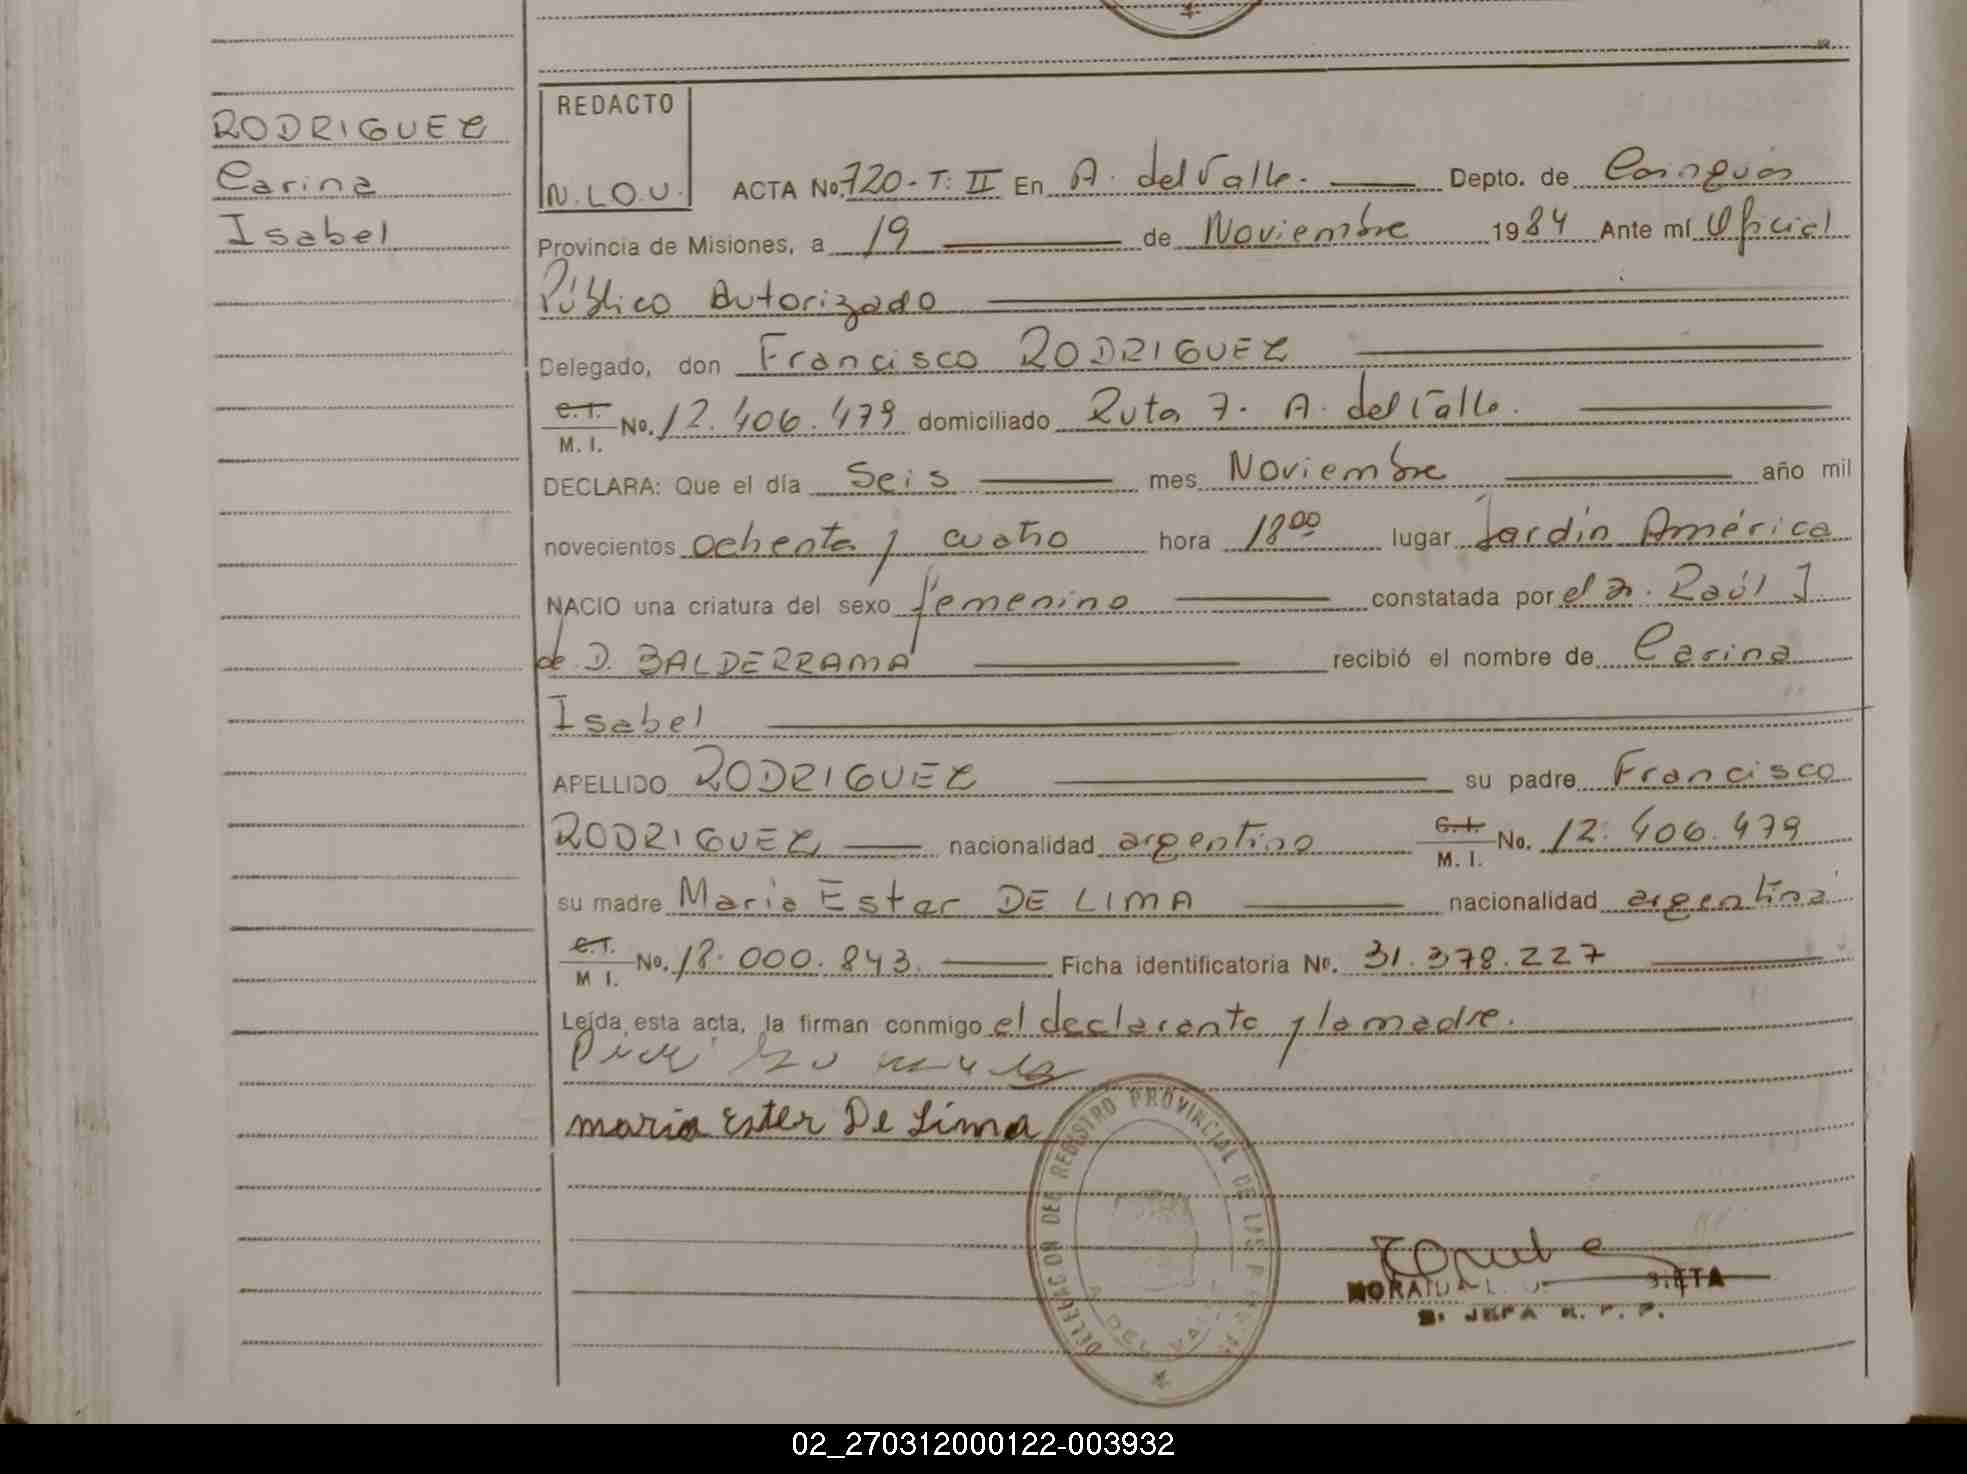 RODRIGUEZ
Carina
Isabel
REDACTO
N.L.O.U.
ACTA No. 720-T: II En A. del Valle. Depto. de Cainguás
Provincia de Misiones, a 19 de Noviembre 1984 Ante mí Oficial
Público Autorizado
Delegado, don Francisco RODRIGUEZ
C.I. M.I. No. 12.406.479 domiciliado Ruta 7. A. del Valle.
DECLARA: Que el día Seis mes Noviembre año mil
novecientos ochenta y cuatro hora 18⁰⁰ lugar Jardín América
NACIO una criatura del sexo femenino constatada por el Dr. Raúl J.
de D. BALDERRAMA recibió el nombre de Carina
Isabel
APELLIDO RODRIGUEZ su padre Francisco
RODRIGUEZ nacionalidad argentino C.I. M.I. No. 12.406.479
su madre Maria Ester DE LIMA nacionalidad argentina
C.I. M I. No. 18.000.843. Ficha identificatoria No. 31.378.227
Leída esta acta, la firman conmigo el declarante y la madre.
maria Ester De Lima
DELEGACION DEL REGISTRO PROVINCIAL DE LAS PERSONAS
A. DEL VALLE
JEFA R. P. P.
02_270312000122-003932